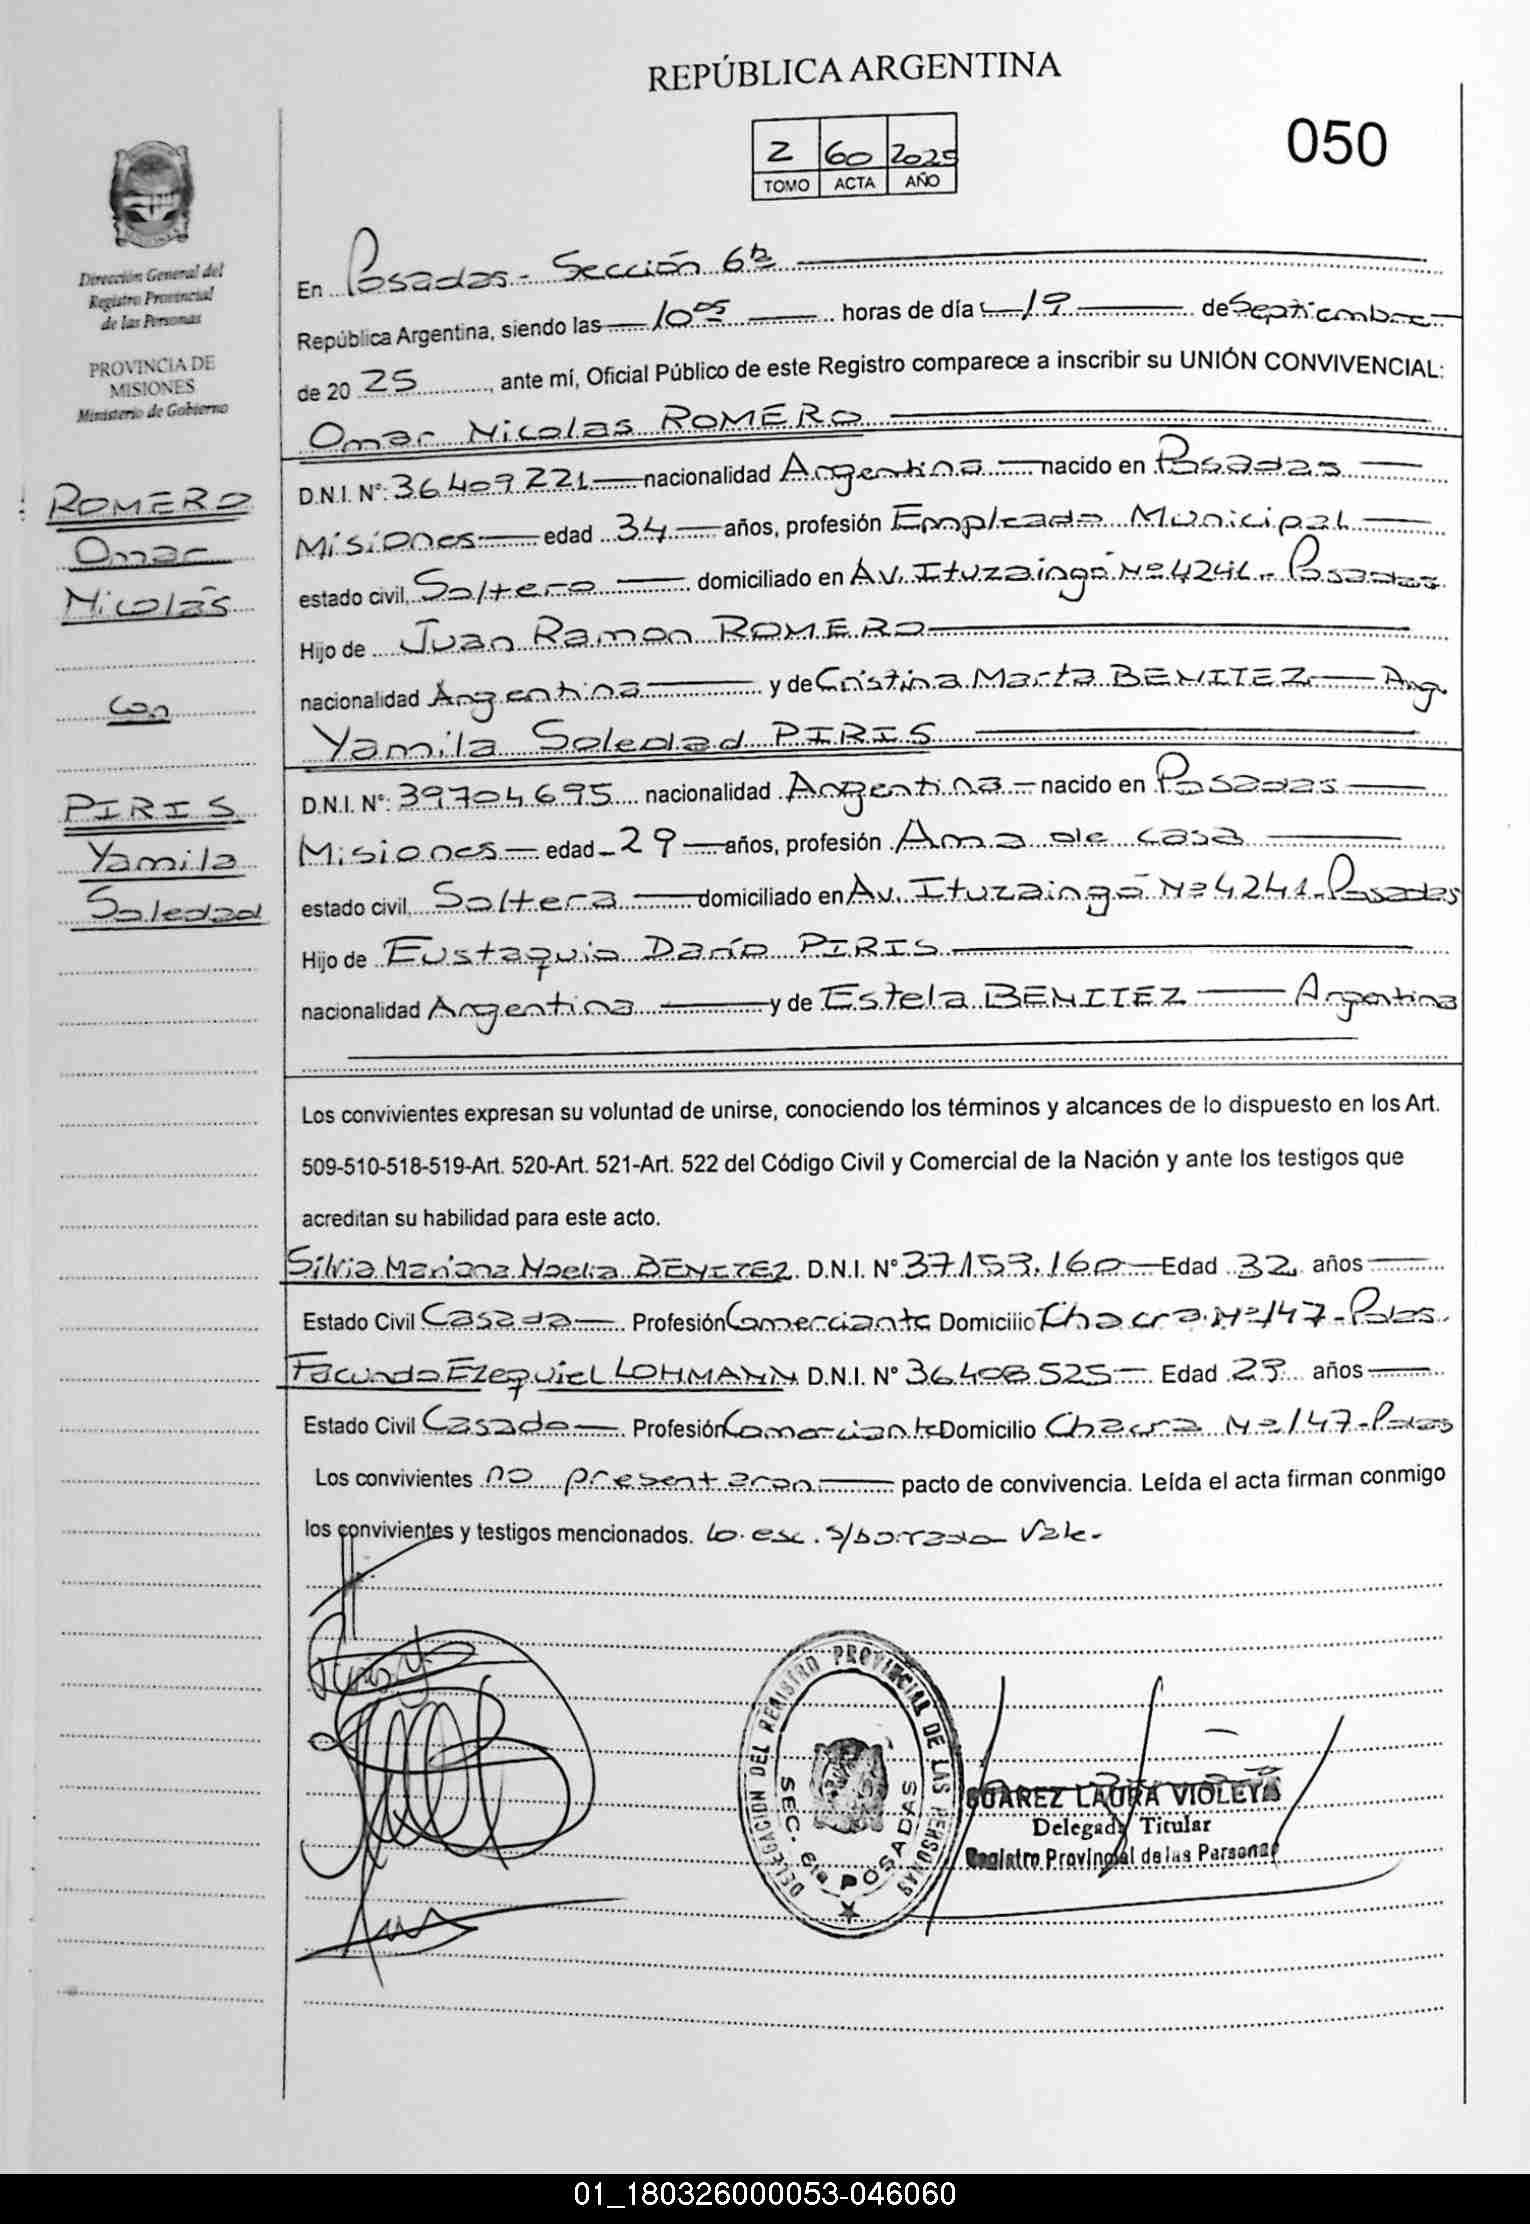 REPÚBLICA ARGENTINA
2 60 2025
TOMO ACTA AÑO
050
Dirección General del
Registro Provincial
de las Personas
PROVINCIA DE
MISIONES
Ministerio de Gobierno
ROMERO
Omar
Nicolás
con
PIRIS
Yamila
Soledad
En Posadas - Sección 6ta
República Argentina, siendo las 10:05 horas de día 19 de Septiembre
de 20 25, ante mí, Oficial Público de este Registro comparece a inscribir su UNIÓN CONVIVENCIAL:
Omar Nicolas ROMERO
D.N.I. N°: 36409221 nacionalidad Argentina nacido en Posadas
Misiones edad 34 años, profesión Empleado Municipal
estado civil, Soltero domiciliado en Av. Ituzaingó Nº 4241 - Posadas
Hijo de Juan Ramon ROMERO
nacionalidad Argentina y de Cristina Marta BENITEZ Arg.
Yamila Soledad PIRIS
D.N.I. N°: 39704695 nacionalidad Argentina nacido en Posadas
Misiones edad 29 años, profesión Ama de casa
estado civil, Soltera domiciliado en Av. Ituzaingó Nº 4241 - Posadas
Hijo de Eustaquio Darío PIRIS
nacionalidad Argentina y de Estela BENITEZ Argentina
Los convivientes expresan su voluntad de unirse, conociendo los términos y alcances de lo dispuesto en los Art.
509-510-518-519-Art. 520-Art. 521-Art. 522 del Código Civil y Comercial de la Nación y ante los testigos que
acreditan su habilidad para este acto.
Silvia Mariana Noelia BENITEZ D.N.I. N° 37.153.160 Edad 32 años
Estado Civil Casada Profesión Comerciante Domicilio Chacra Nº 147 - Pdas.
Facundo Ezequiel LOHMANN D.N.I. N° 36.408.525 Edad años
Estado Civil Casado Profesión Comerciante Domicilio Chacra Nº 147 - Pdas
Los convivientes no presentaron pacto de convivencia. Leída el acta firman conmigo
los convivientes y testigos mencionados. lo esc. s/borrado Vale.-
DELEGACION DEL REGISTRO PROVINCIAL DE LAS PERSONAS
SEC. 6ta POSADAS
SUAREZ LAURA VIOLETA
Delegada Titular
Registro Provincial de las Personas
01_180326000053-046060